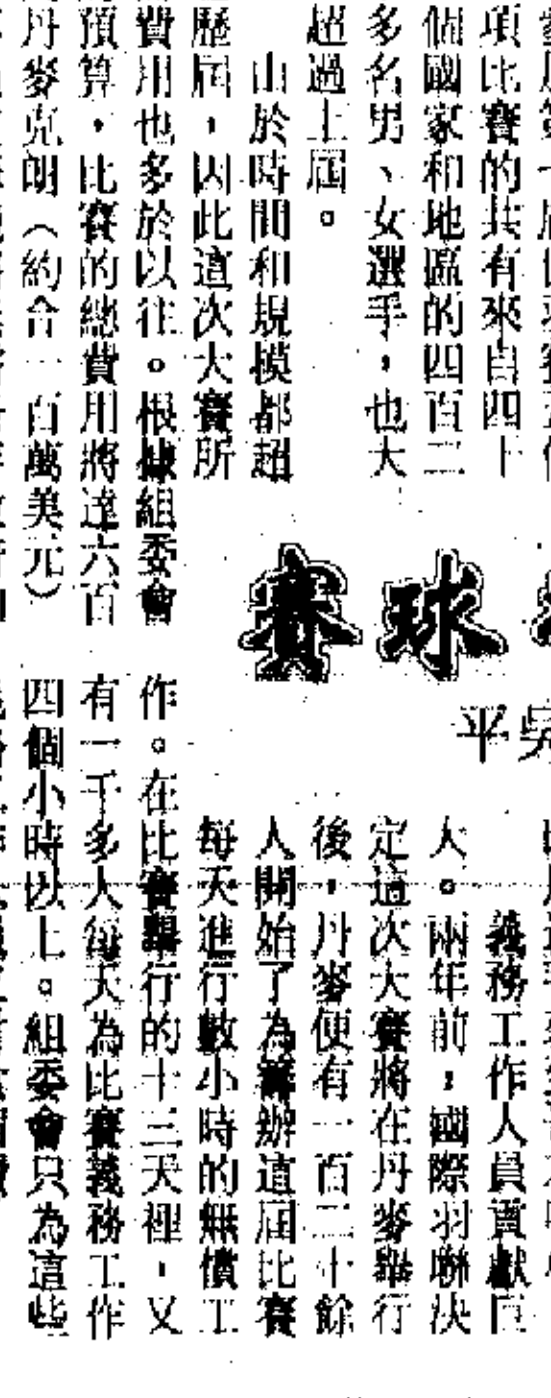 項比賽的共有來自四十
個國家和地區的四百二
多名男、女選手,也大
超過上屆。
由於時間和規模都超
歷屆,因此這次大賽所
費用也多於以往。根據組委會
預算,比賽的總費用將達六百
丹麥克朗(約合一百萬美元)
球賽
吳平
義務工作人員貢獻巨
大。兩年前,國際羽聯決
定這次大賽將在丹麥舉行
後,丹麥便有一百二十餘
人開始了為籌辦這屆比賽
每天進行數小時的無償工
作。在比賽舉行的十三天裡,又
有一千多人每天為比賽義務工作
四個小時以上。組委會只為這些